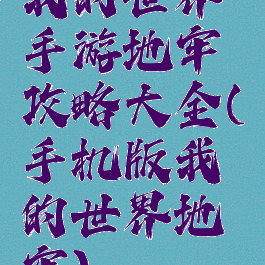 我的世界
手游地牢
攻略大全(
手机版我
的世界地
牢)